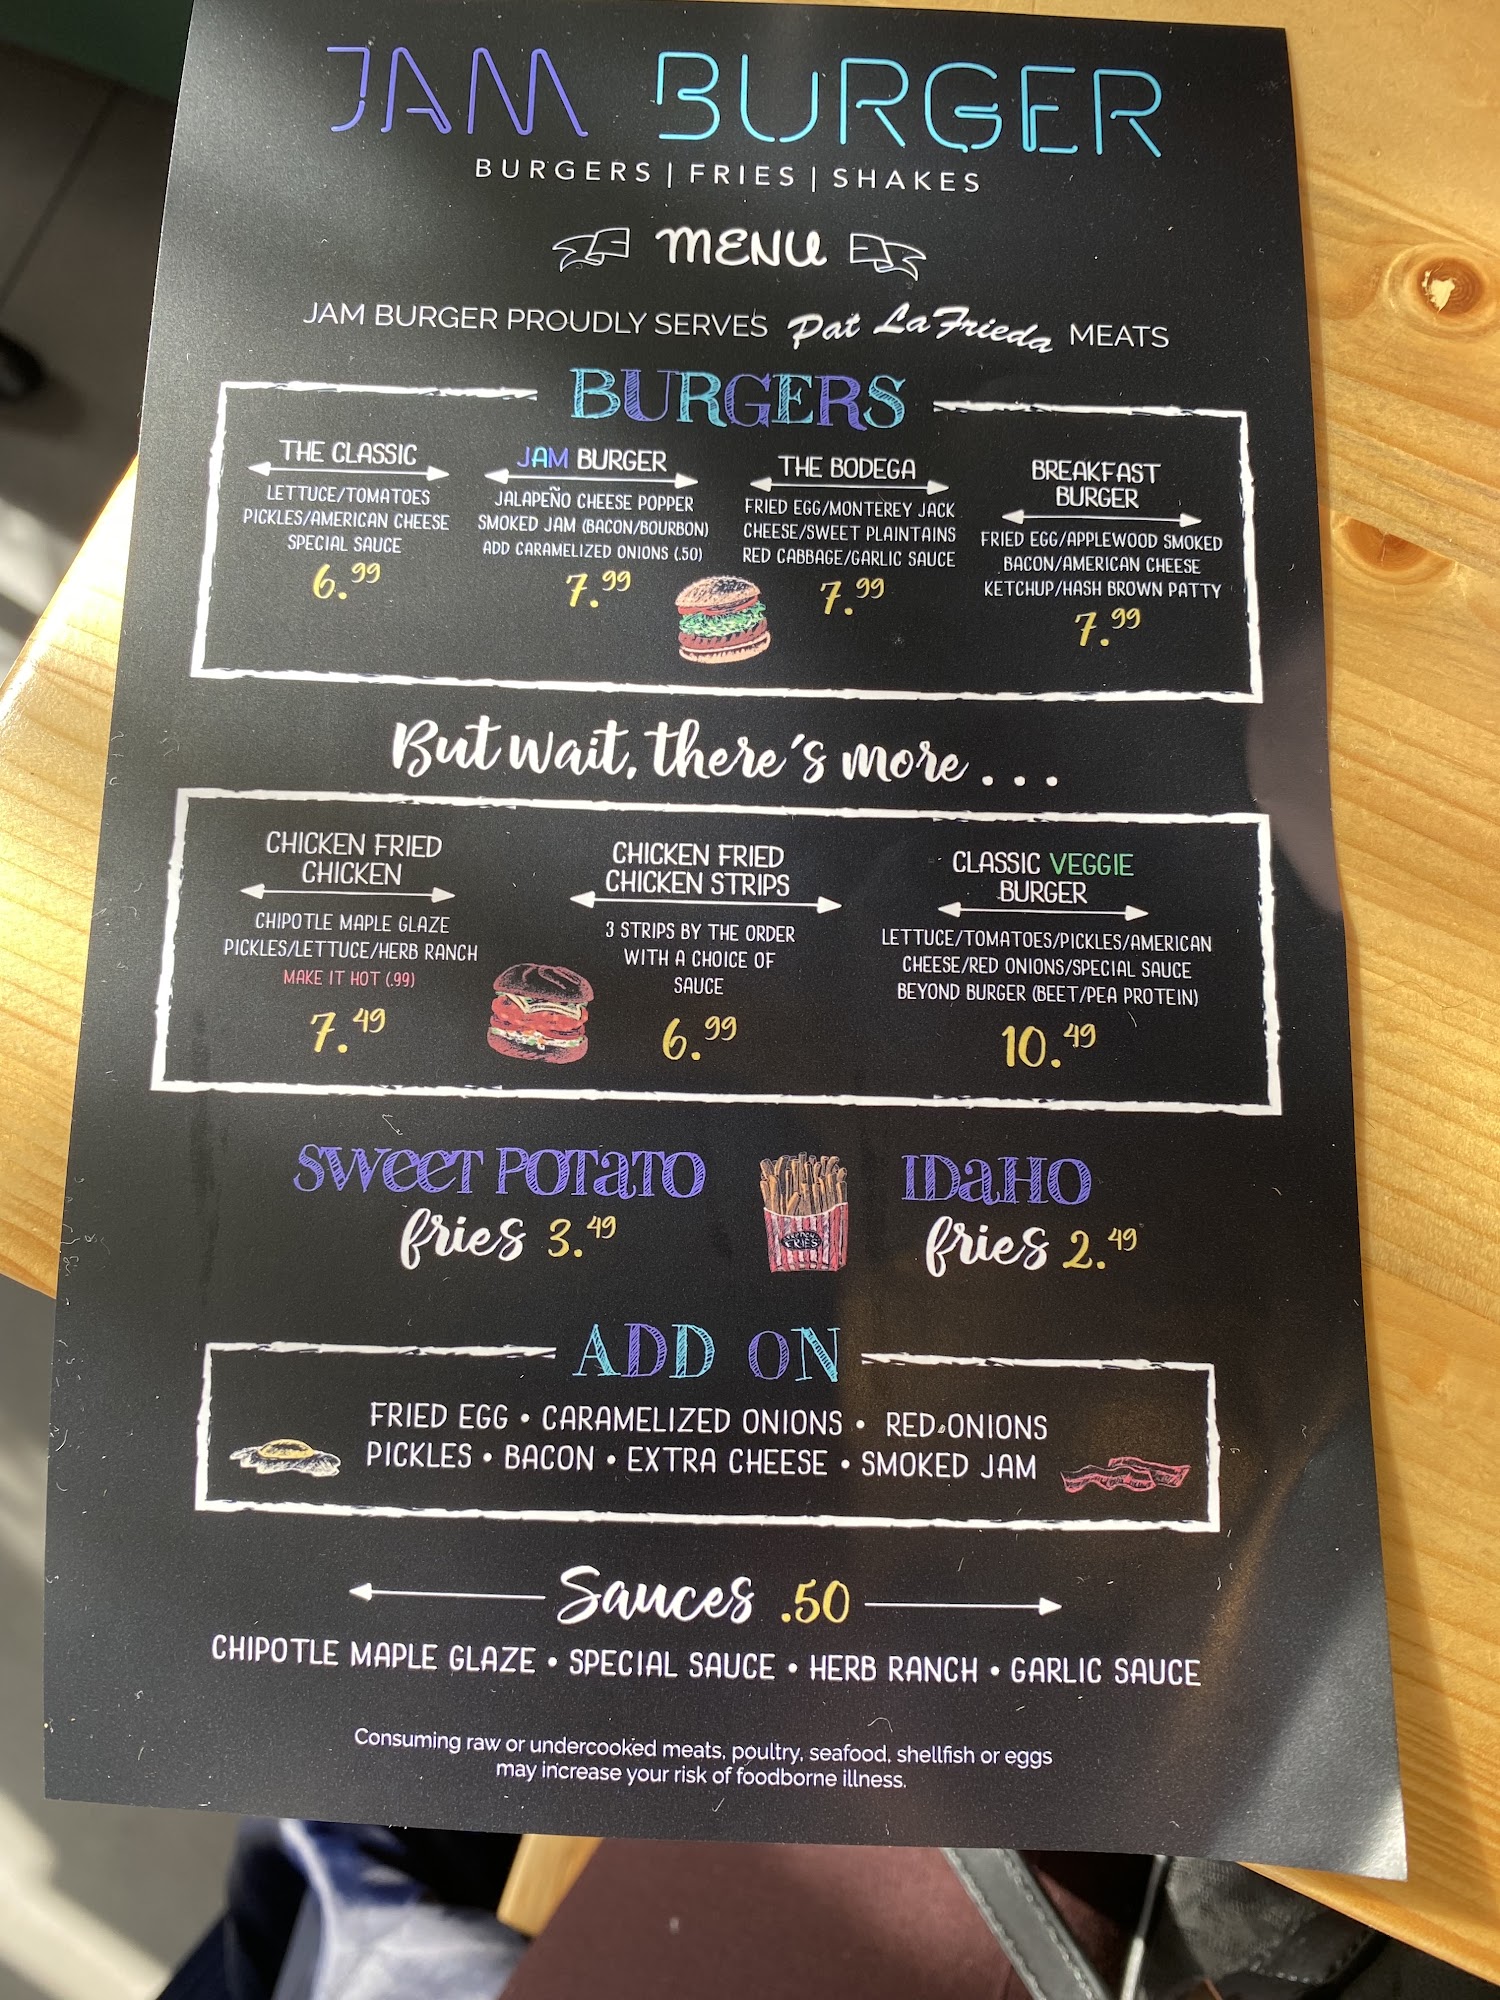 JAM BURGER
BURGERS | FRIES | SHAKES
MENU
JAM BURGER PROUDLY SERVES Pat LaFrieda MEATS
BURGERS
THE CLASSIC
LETTUCE/TOMATOES
PICKLES/AMERICAN CHEESE
SPECIAL SAUCE
6.99
JAM BURGER
JALAPEÑO CHEESE POPPER
SMOKED JAM (BACON/BOURBON)
ADD CARAMELIZED ONIONS (.50)
7.99
THE BODEGA
FRIED EGG/MONTEREY JACK
CHEESE/SWEET PLAINTAINS
RED CABBAGE/GARLIC SAUCE
7.99
BREAKFAST
BURGER
FRIED EGG/APPLEWOOD SMOKED
BACON/AMERICAN CHEESE
KETCHUP/HASH BROWN PATTY
7.99
But wait, there's more . . .
CHICKEN FRIED
CHICKEN
CHIPOTLE MAPLE GLAZE
PICKLES/LETTUCE/HERB RANCH
MAKE IT HOT (.99)
7.49
CHICKEN FRIED
CHICKEN STRIPS
3 STRIPS BY THE ORDER
WITH A CHOICE OF
SAUCE
6.99
CLASSIC VEGGIE
BURGER
LETTUCE/TOMATOES/PICKLES/AMERICAN
CHEESE/RED ONIONS/SPECIAL SAUCE
BEYOND BURGER (BEET/PEA PROTEIN)
10.49
SWEET POTATO
fries 3.49
FRIES
IDAHO
fries 2.49
ADD ON
FRIED EGG • CARAMELIZED ONIONS • RED ONIONS
PICKLES • BACON • EXTRA CHEESE • SMOKED JAM
Sauces .50
CHIPOTLE MAPLE GLAZE • SPECIAL SAUCE • HERB RANCH • GARLIC SAUCE
Consuming raw or undercooked meats, poultry, seafood, shellfish or eggs
may increase your risk of foodborne illness.